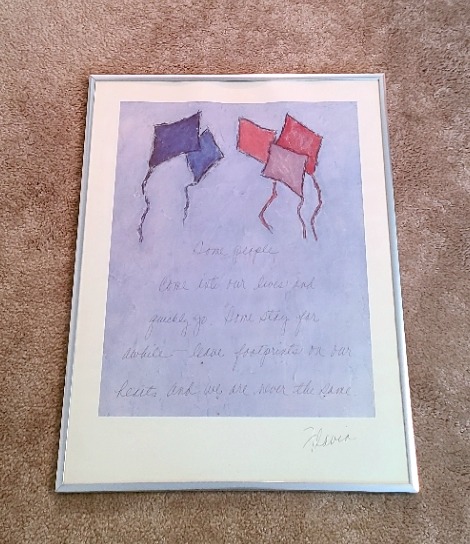 Some people
come into our lives and
quickly go. Some stay for
awhile - leave footprints on our
hearts and we are never the same.
Flavia